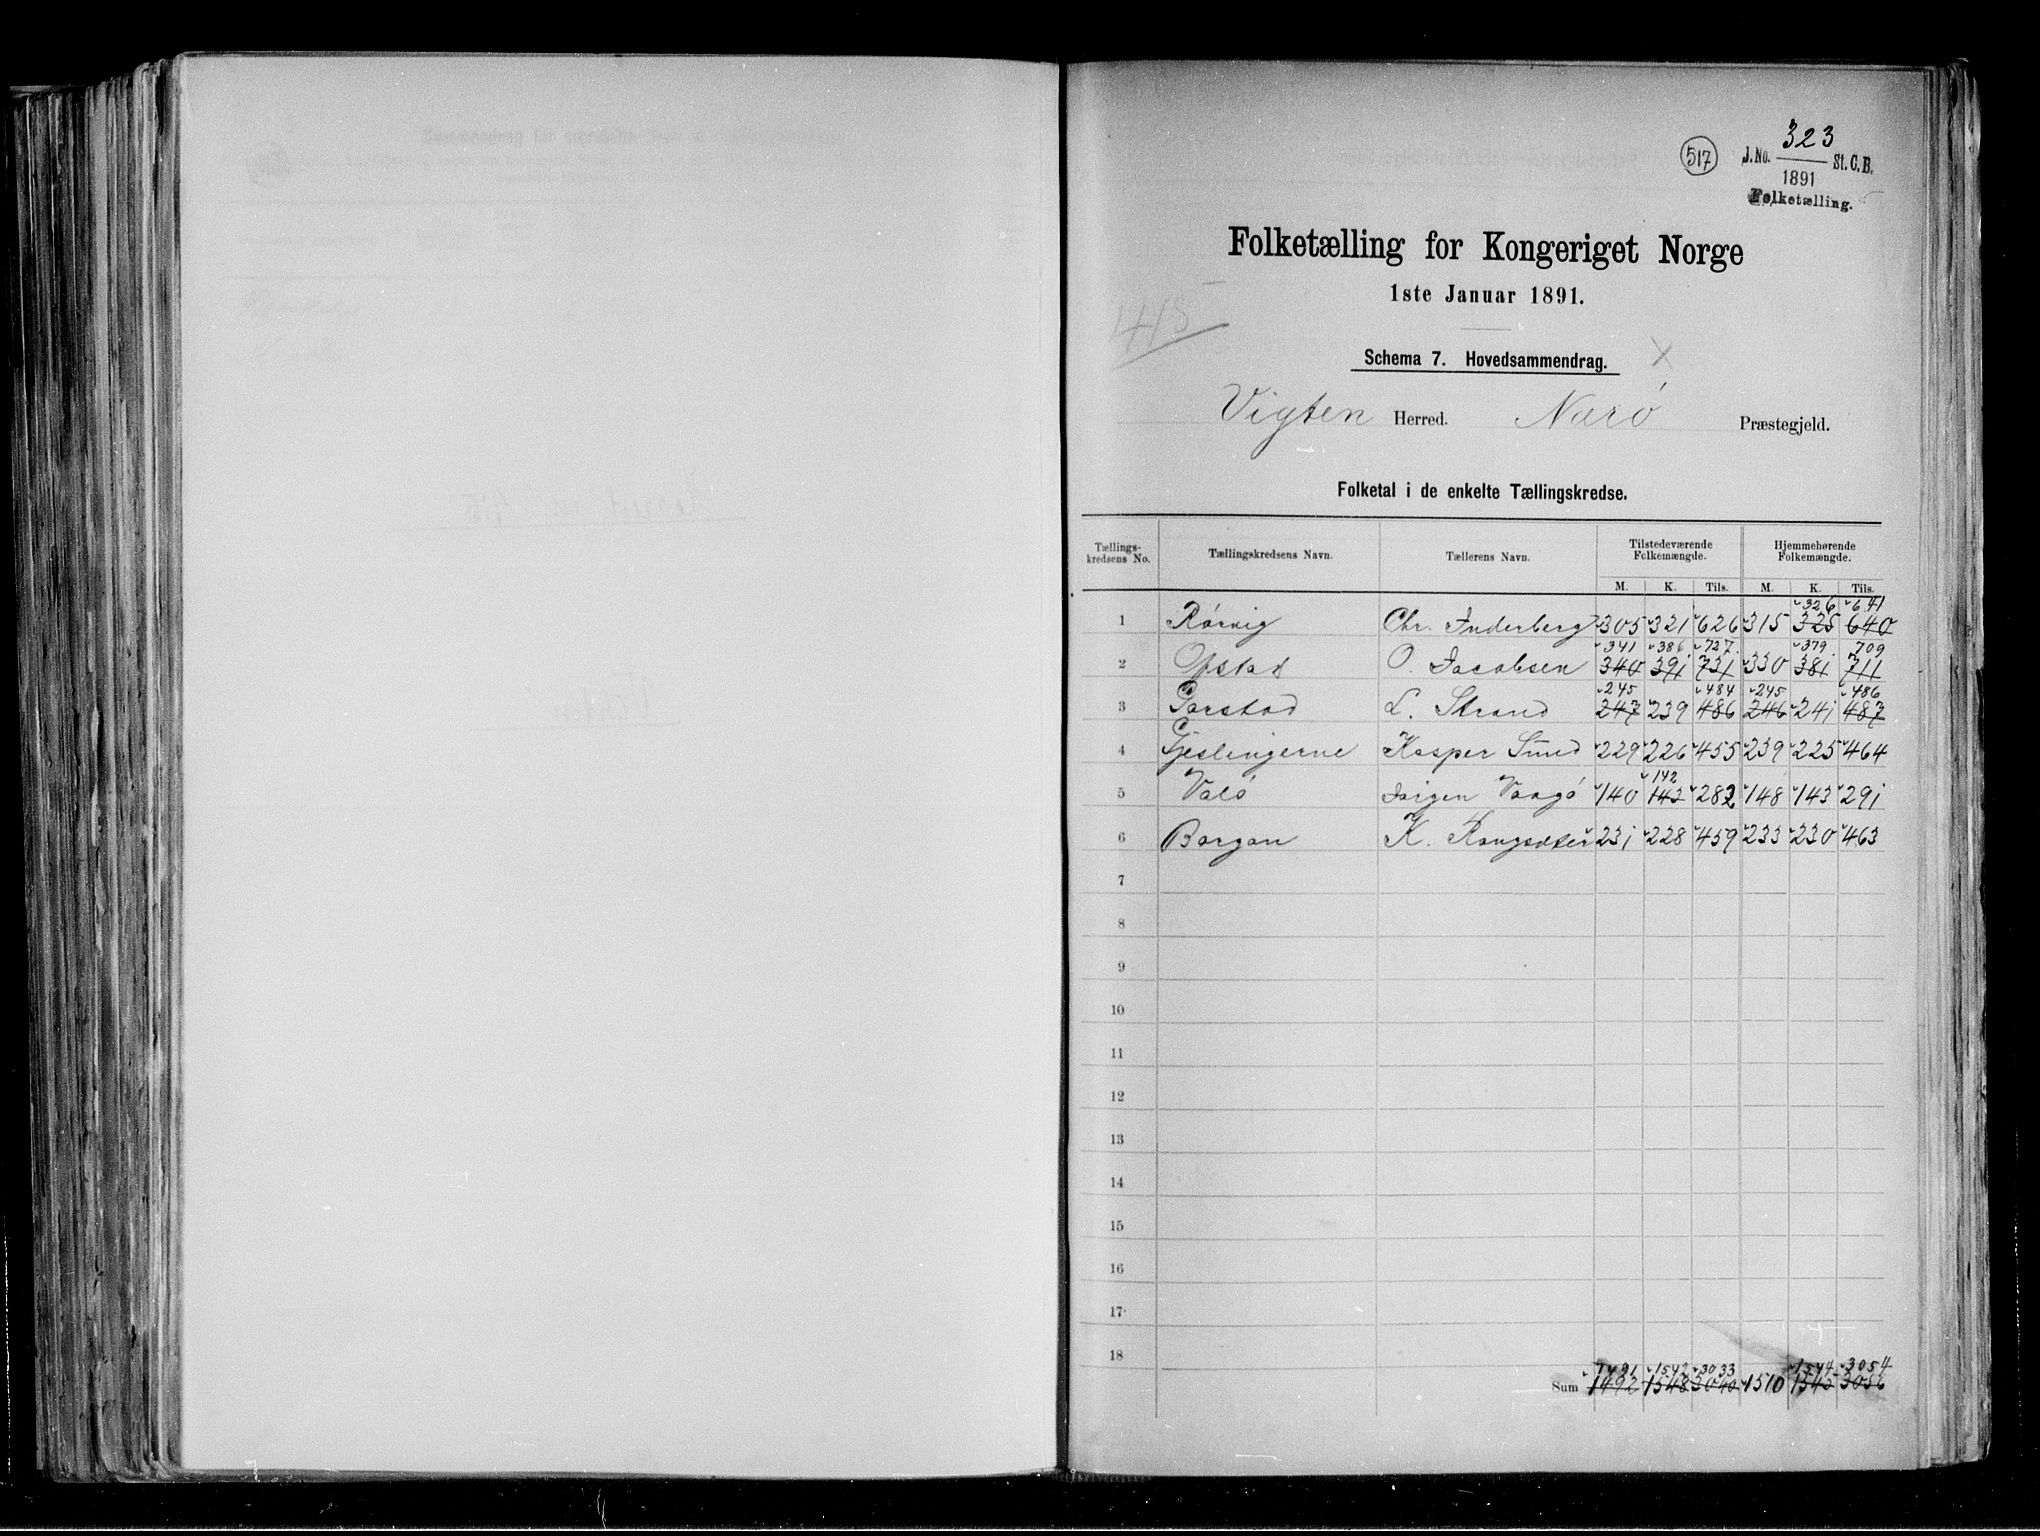 517
J.No. 323 St. C. B.
1891
Folketælling.
Folketælling for Kongeriget Norge
1ste Januar 1891.
415
Schema 7. Hovedsammendrag. X
Vigten Herred. Nærø Præstegjeld.
Folketal i de enkelte Tællingskredse.
Tællings-kredsens No. Tællingskredsens Navn. Tællerens Navn. Tilstedeværende Folkemængde. Hjemmehørende Folkemængde.
M. K. Tils. M. K. Tils.
326 641
1 Rørvig Chr. Inderberg 305 321 626 315 325 640
341 386 727 379 709
2 Ofstad O. Jacobsen 340 391 731 330 381 711
245 484 245 486
3 Garstad L. Strand 247 239 486 246 241 487
4 Gjeslingerne Kasper Smed 229 226 455 239 225 464
142
5 Valø Jørgen Vaagø 140 143 282 148 143 291
6 Borgan K. 231 228 459 233 230 463
7
8
9
10
11
12
13
14
15
16
17
18
1491 1542 3033 1544 3054
Sum 1492 1548 3040 1510 1545 3056